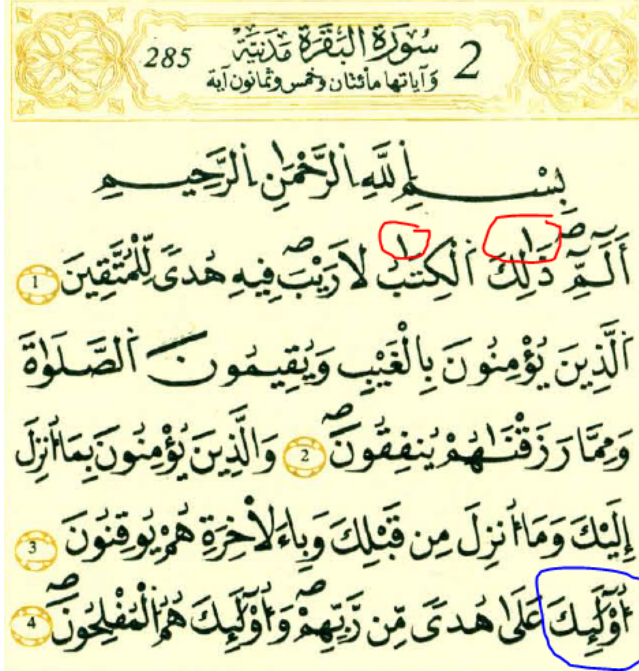 2 سُورَةُ الْبَقَرَةِ مَدَنِيَّة 285
وَآيَاتها مائتان وخمس وثمانون آية
بِسْمِ اِ۬للَّهِ اِ۬لرَّحْمَٰنِ اِ۬لرَّحِيمِ
أَلَٓمِّٓۖ ذَٰلِكَ اَ۬لْكِتَٰبُ لَا رَيْبَۖ فِيهِ هُدىً لِّلْمُتَّقِينَ 1
اَ۬لَّذِينَ يُؤْمِنُونَ بِالْغَيْبِ وَيُقِيمُونَ اَ۬لصَّلَوٰةَ
وَمِمَّا رَزَقْنَٰهُمْ يُنفِقُونَۖ 2 وَالَّذِينَ يُؤْمِنُونَ بِمَا أُنزِلَ
إِلَيْكَ وَمَا أُنزِلَ مِن قَبْلِكَ وَبِاءَلَاخِرَةِ هُمْ يُوقِنُونَ 3
أُوْلَٰٓئِكَ عَلَىٰ هُدىً مِّن رَّبِّهِمْۖ وَأُوْلَٰٓئِكَ هُمُ اُ۬لْمُفْلِحُونَۖ 4